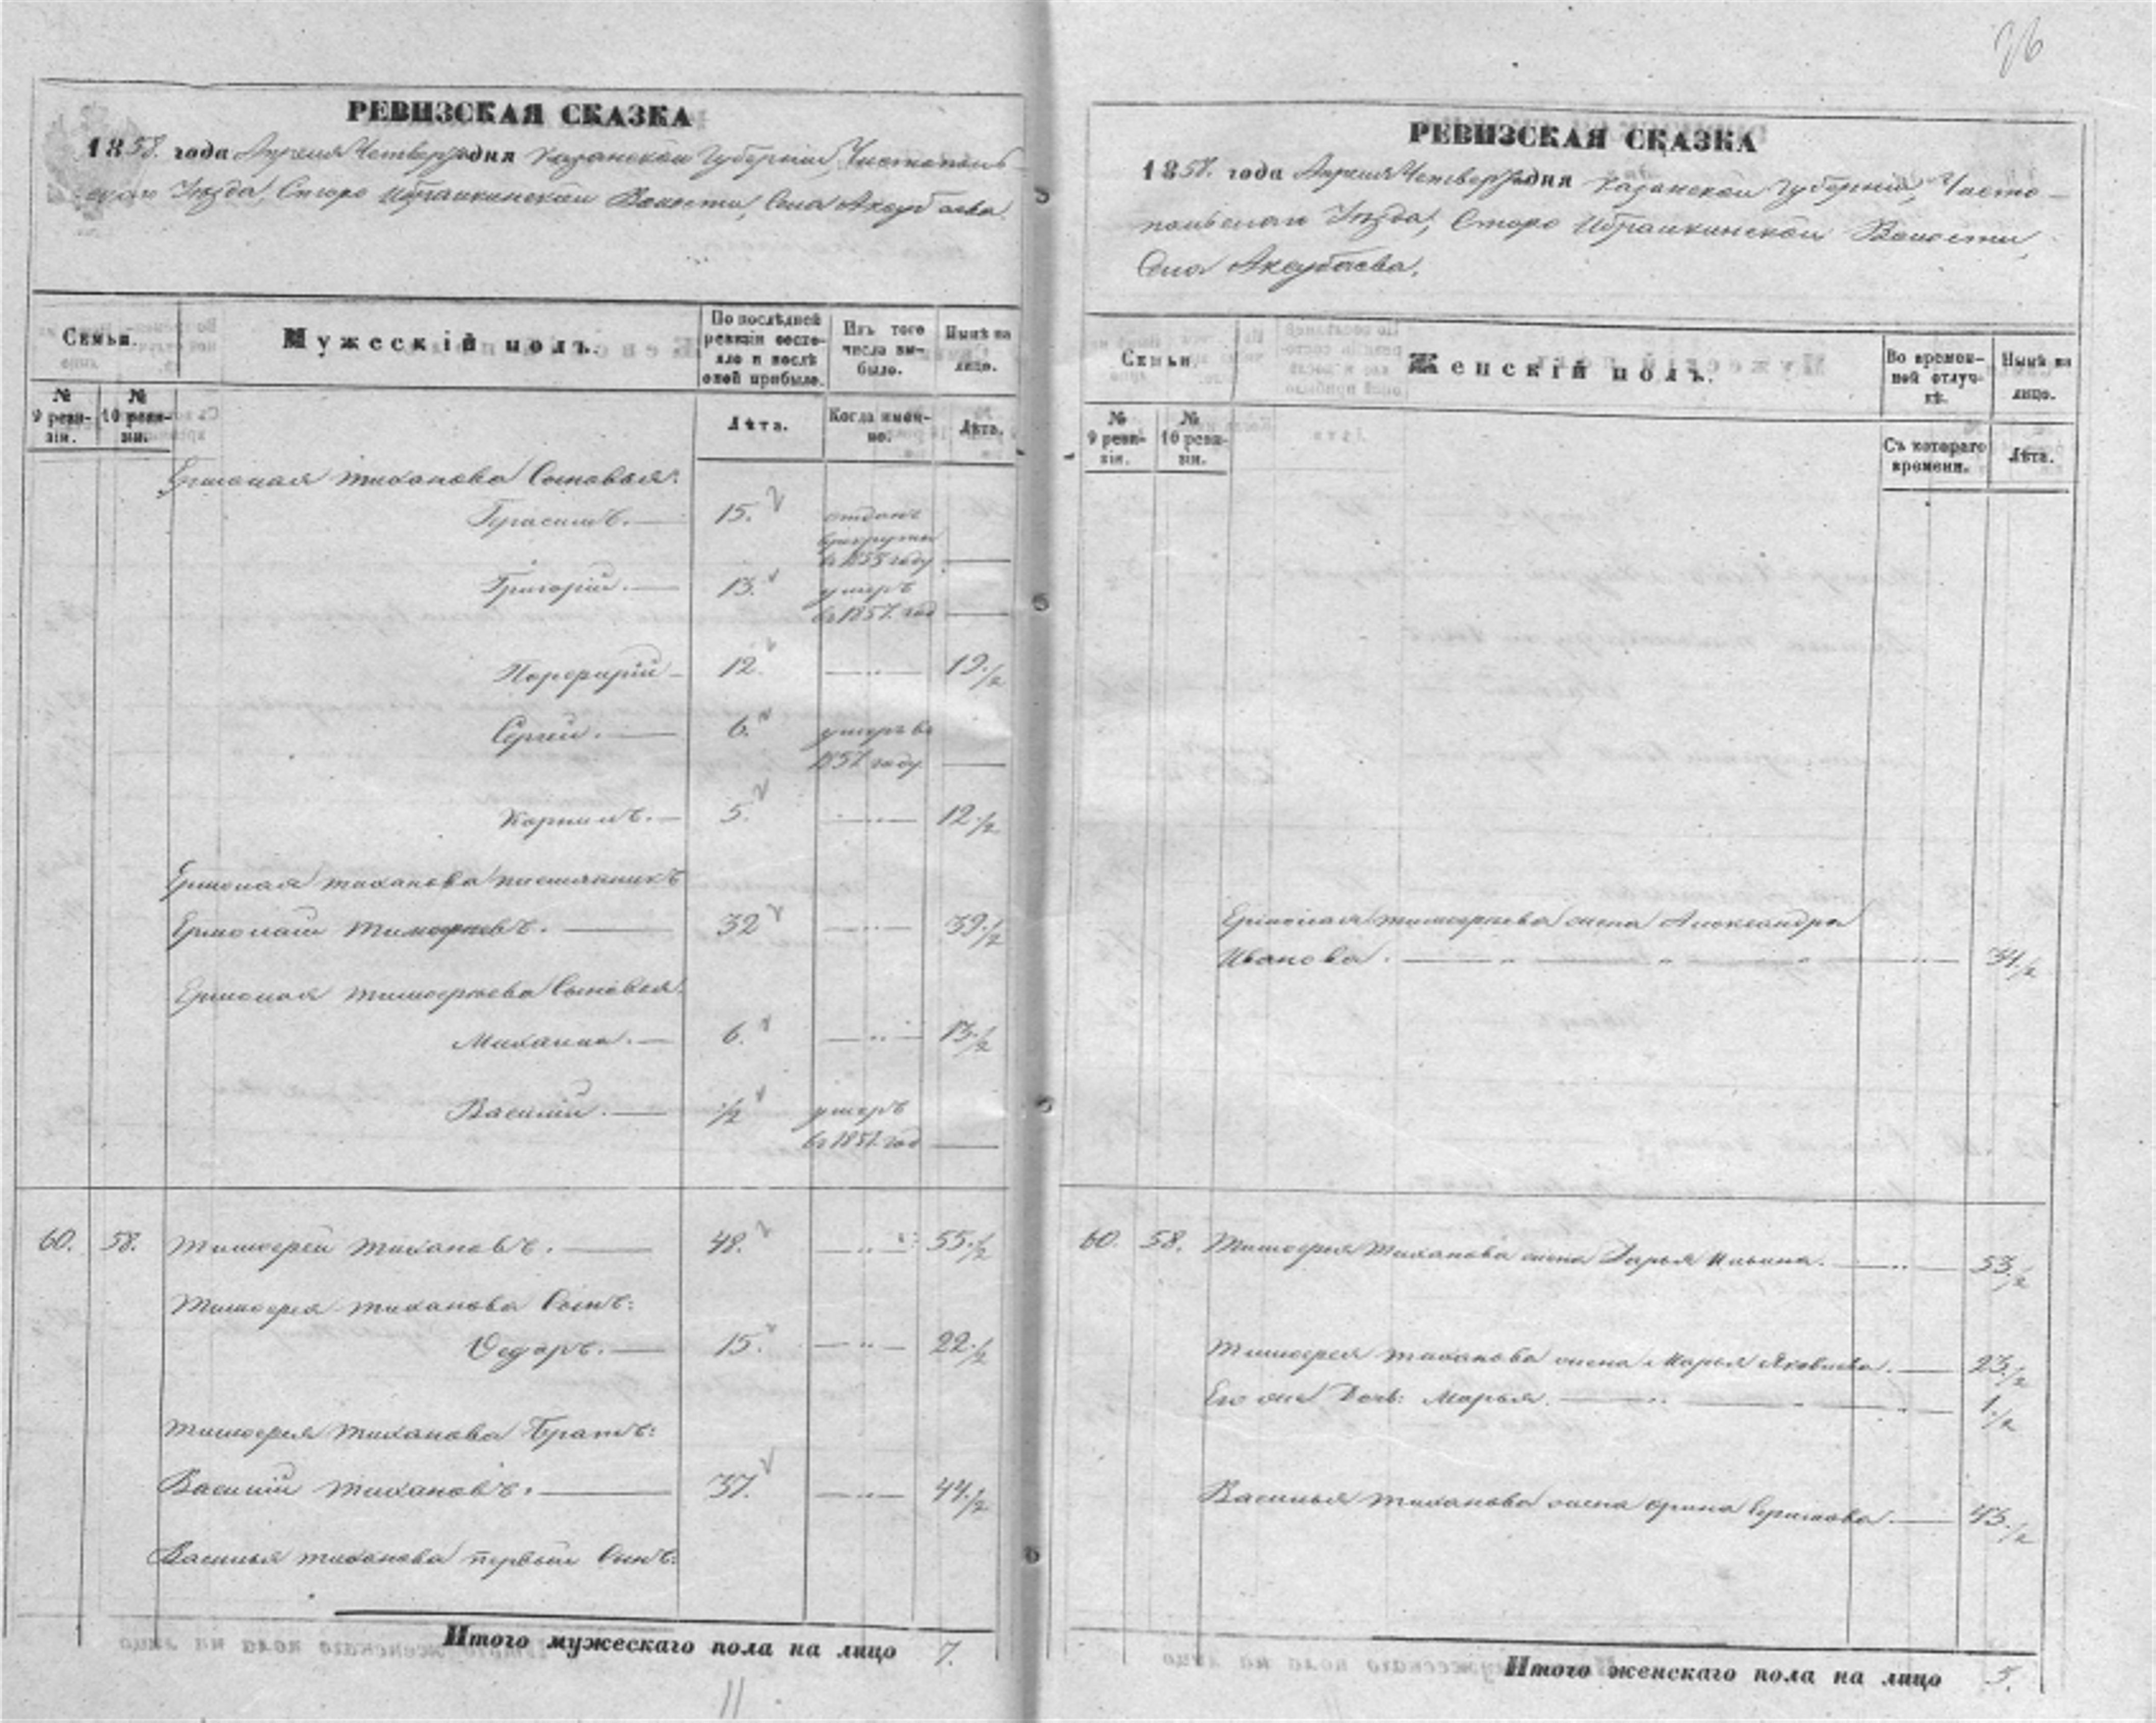 РЕВИЗСКАЯ СКАЗКА
1858. года Апреля Четвертаго дня Казанской Губерніи, Чистополь-
скаго Уѣзда, Старо Ибрайкинской Волости, Села Аксубаева.
Семьи.
Мужескій полъ.
По послѣдней ревизіи состояло и послѣ оной прибыло.
Изъ того числа выбыло.
Нынѣ на лицо.
№ 9 ревизіи.
№ 10 ревизіи.
Лѣта.
Когда именно.
Лѣта.
Ермолая Тиханова Сыновья:
Герасимъ. 15. отданъ
в рекруты
въ 1855 году
Григорій. 13. умеръ
въ 1857. год
Порфирій 12. 19 1/2
Сергей. 6. умеръ въ
1857 году
Корнилъ. 5. 12 1/2
Ермолая Тиханова племянникъ
Ермолай Тимофеевъ. 32 39 1/2
Ермолая Тимофеева Сыновья:
Михаила. 6. 13 1/2
Василий. 1/2 умеръ
въ 1857. год
60. 58. Тимофей Тихановъ. 48. 55 1/2
Тимофея Тиханова Сынъ:
Ѳедоръ. 15. 22 1/2
Тимофея Тиханова Братъ:
Василий Тихановъ. 37. 44 1/2
Василья Тиханова первый Сынъ:
Итого мужескаго пола на лицо 7.
11
36
РЕВИЗСКАЯ СКАЗКА
1858. года Апреля Четвертаго дня Казанской Губерніи, Чисто-
польскаго Уѣзда, Старо Ибрайкинской Волости,
Села Аксубаева.
Семьи.
Женскій полъ.
Во временной отлучкѣ.
Нынѣ на лицо.
№ 9 ревизіи.
№ 10 ревизіи.
Съ котораго времени.
Лѣта.
Ермолая Тимофеева жена Александра
Иванова. 34 1/2
60. 58. Тимофея Тиханова жена Дарья Ильина. 53 1/2
Тимофея Тиханова жена Марья Яковлева. 23 1/2
Его же Дочь: Марья. 1 1/2
Василья Тиханова жена 43 1/2
Итого женскаго пола на лицо 5.